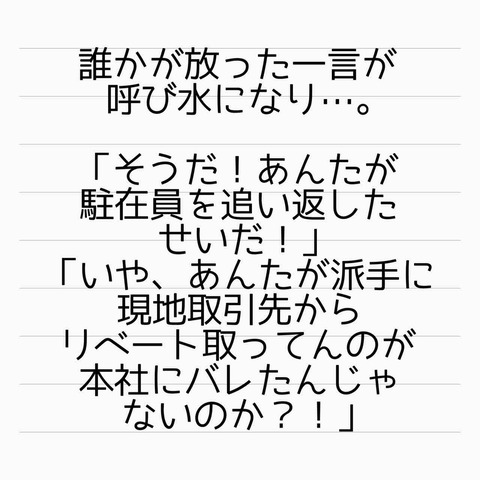 誰かが放った一言が
呼び水になり…。
「そうだ！あんたが
駐在員を追い返した
せいだ！」
「いや、あんたが派手に
現地取引先から
リベート取ってんのが
本社にバレたんじゃ
ないのか？！」